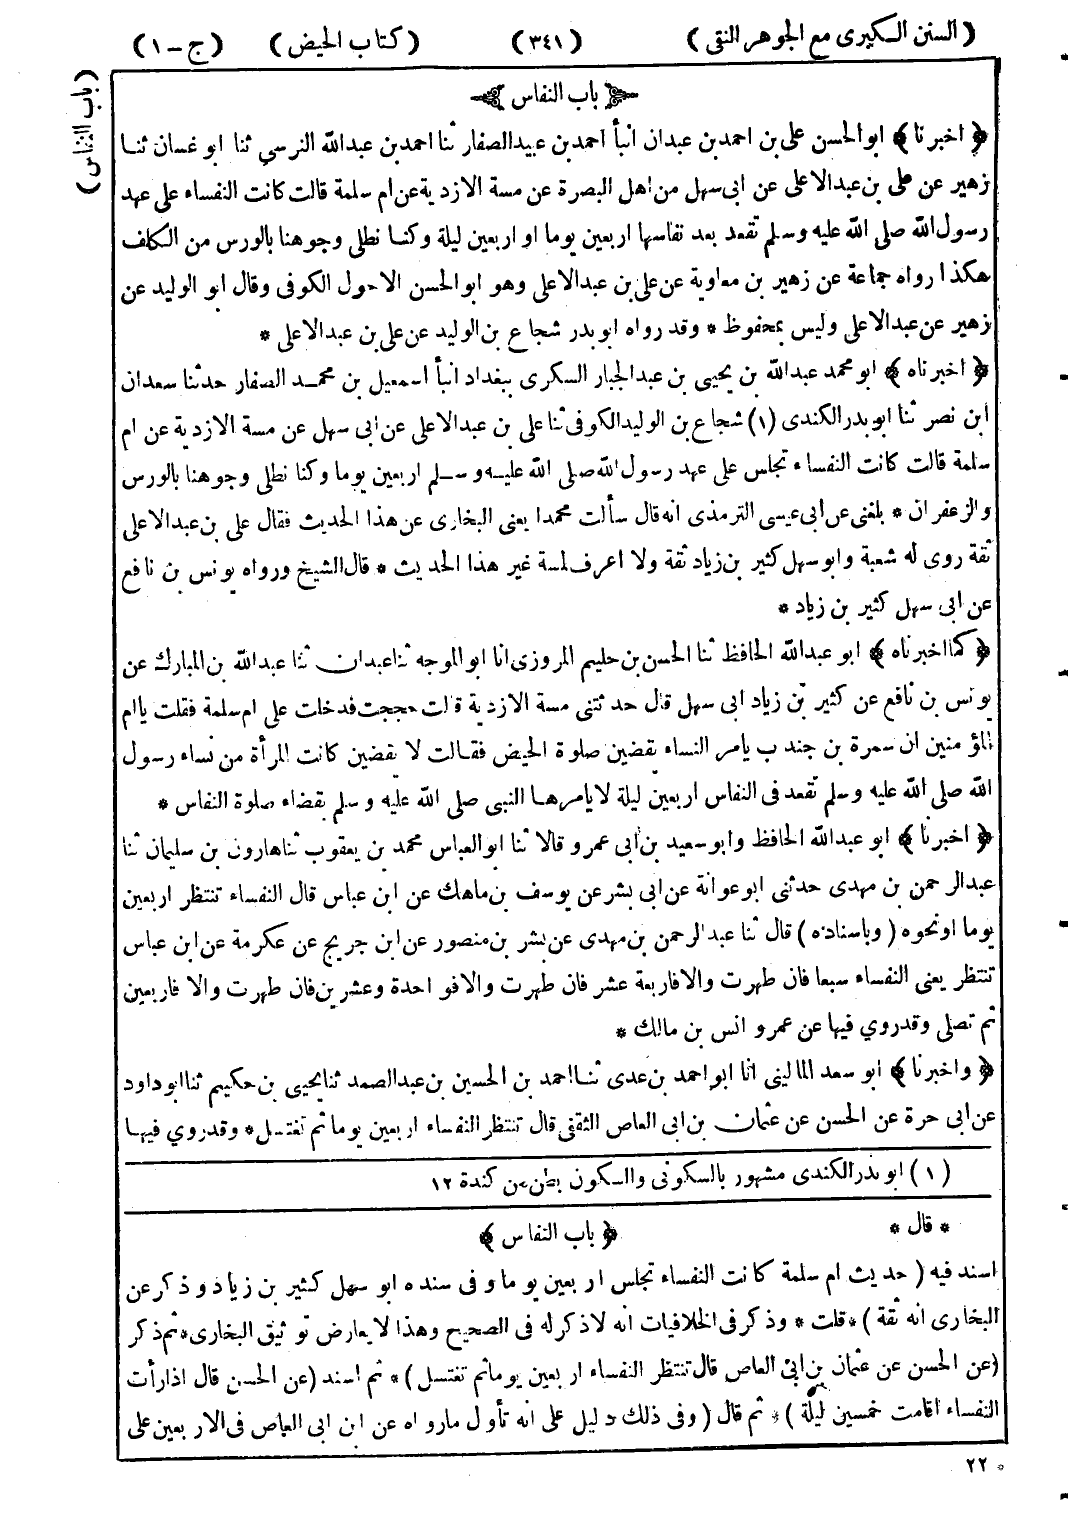 ( السنن الكبرى مع الجوهر النقى ) ( ٣٤١ ) ( كتاب الحيض ) ( ج – ١ )
( باب النفاس )
﴿ باب النفاس ﴾
﴿ اخبرنا ﴾ ابو الحسن على بن احمد بن عبدان انبأ احمد بن عبيد الصفار ثنا احمد بن عبدالله النرسي ثنا ابو غسان ثنا
زهير عن على بن عبد الاعلى عن ابى سهل من اهل البصرة عن مسة الازدية عن ام سلمة قالت كانت النفساء على عهد
رسول الله صلى الله عليه وسلم تقعد بعد نفاسها اربعين يوما او اربعين ليلة وكنا نطلى وجوهنا بالورس من الكلف
هكذا رواه جماعة عن زهير بن معاوية عن على بن عبد الاعلى وهو ابو الحسن الاحول الكوفى وقال ابو الوليد عن
زهير عن عبد الاعلى وليس بمحفوظ * وقد رواه ابو بدر شجاع بن الوليد عن على بن عبد الاعلى *
﴿ اخبرناه ﴾ ابو محمد عبدالله بن يحيى بن عبد الجبار السكرى ببغداد انبأ اسمعيل بن محمد الصفار حدثنا سعدان
ابن نصر ثنا ابو بدر الكندى (١) شجاع بن الوليد الكوفى ثنا على بن عبد الاعلى عن ابى سهل عن مسة الازدية عن ام
سلمة قالت كانت النفساء تجلس على عهد رسول الله صلى الله عليه وسلم اربعين يوما وكنا نطلى وجوهنا بالورس
والزعفران * بلغنى عن ابى عيسى الترمذى انه قال سألت محمدا يعنى البخارى عن هذا الحديث فقال على بن عبد الاعلى
ثقة روى له شعبة وابو سهل كثير بن زياد ثقة ولا اعرف لمسة غير هذا الحديث * قال الشيخ ورواه يونس بن نافع
عن ابى سهل كثير بن زياد *
﴿ كما اخبرناه ﴾ ابو عبدالله الحافظ ثنا الحسن بن حليم المروزى انا ابو الموجه ثنا عبدان ثنا عبدالله بن المبارك عن
يونس بن نافع عن كثير بن زياد ابى سهل قال حدثتنى مسة الازدية قالت حججت فدخلت على ام سلمة فقلت يا ام
المؤمنين ان سمرة بن جندب يامر النساء يقضين صلوة الحيض فقالت لا يقضين كانت المرأة من نساء رسول
الله صلى الله عليه وسلم تقعد فى النفاس اربعين ليلة لا يامرها النبى صلى الله عليه وسلم بقضاء صلوة النفاس *
﴿ اخبرنا ﴾ ابو عبدالله الحافظ وابو سعيد بن ابى عمرو قالا ثنا ابو العباس محمد بن يعقوب ثنا هارون بن سليمان ثنا
عبد الرحمن بن مهدى حدثنى ابو عوانة عن ابى بشر عن يوسف بن ماهك عن ابن عباس قال النفساء تنتظر اربعين
يوما او نحوه ( وباسناده ) قال ثنا عبد الرحمن بن مهدى عن بشر بن منصور عن ابن جريج عن عكرمة عن ابن عباس
تنتظر يعنى النفساء سبعا فان طهرت والا فاربعة عشر فان طهرت والا فواحدة وعشرين فان طهرت والا فاربعين
ثم تصلى وقد روي فيها عن عمر و انس بن مالك *
﴿ واخبرنا ﴾ ابو سعد المالينى انا ابو احمد بن عدى ثنا احمد بن الحسين بن عبد الصمد ثنا يحيى بن حكيم ثنا ابو داود
عن ابى حرة عن الحسن عن عثمان بن ابى العاص الثقفى قال تنتظر النفساء اربعين يوما ثم تغتسل * وقد روي فيها
( ١ ) ابو بدر الكندى مشهور بالسكونى والسكون بطن من كندة ١٢
* قال * ﴿ باب النفاس ﴾
اسند فيه ( حديث ام سلمة كانت النفساء تجلس اربعين يوما وفى سنده ابو سهل كثير بن زياد وذكر عن
البخارى انه ثقة ) * قلت * وذكر فى الخلافيات انه لا ذكر له فى الصحيح وهذا لا يعارض توثيق البخارى * ثم ذكر
(عن الحسن عن عثمان بن ابى العاص قال تنتظر النفساء اربعين يوما ثم تغتسل ) * ثم اسند (عن الحسن قال اذا رأت
النفساء اقامت خمسين ليلة ) * ثم قال ( وفى ذلك دليل على انه تأول ما رواه عن ابن ابى العاص فى الاربعين على
٢٢